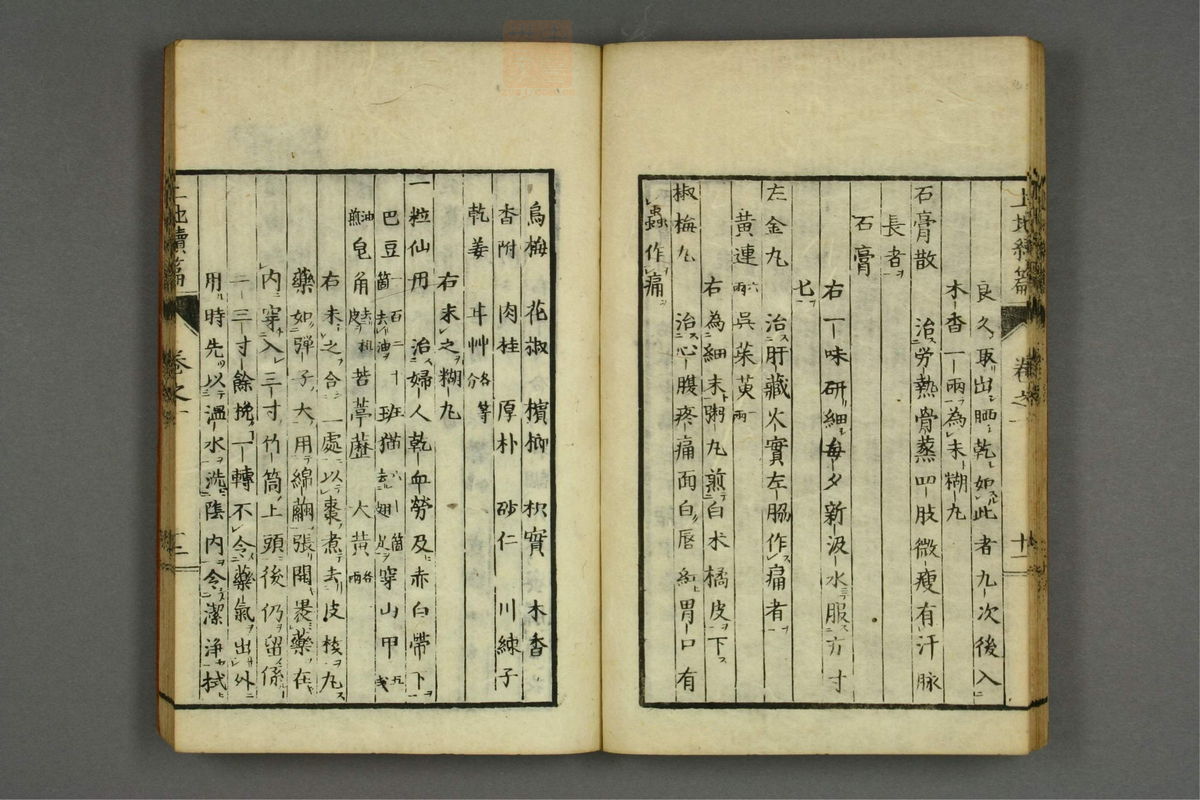 良久取出晒乾如此者九次後入
木香一兩為末糊丸
石膏散　治労熱骨蒸四肢微瘦有汗脉
長者
石膏
右一味研細每夕新汲水服方寸
匕
左金丸　治肝藏火實左脇作痛者
黃連六兩　吳茱萸一兩
右為細末粥丸煎白朮橘皮下
椒梅丸　治心腹疼痛面白唇紅胃口有
蟲作痛
上池續篇　卷之一　十二
烏梅　花椒　檳榔　枳實　木香
香附　肉桂　厚朴　砂仁　川練子
乾姜　甘艸各等分
右末之糊丸
一粒仙丹　治婦人乾血勞及赤白帶下
巴豆一百二十箇去油　斑猫六十箇去翅足　穿山甲五戔
油煎皂角去粗皮　苦葶藶　大黃各兩
右末之合一處以棗煮去皮核丸
藥如彈子大用綿繭張開裹藥在
內穿入三寸竹筒上頭後仍留係
二三寸餘挽一轉不令藥氣出外
用時先以溫水洗陰內令潔淨拭
上池續篇　卷之一　十三